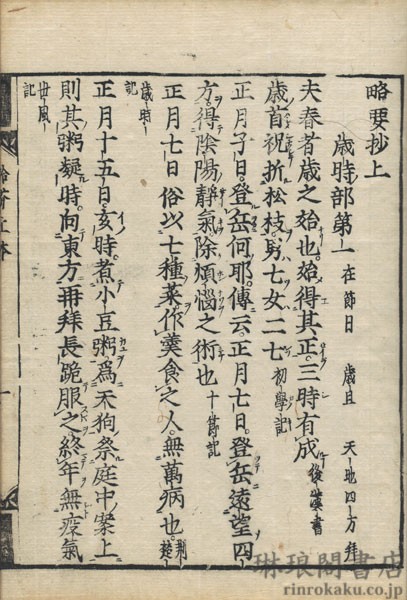 略要抄上
歳時部第一 在節日 歳旦 天地四方拜
夫春者歳之始也。始得其正。三時有成 後漢書
歳首祝折松枝。男七女二七 初學記
正月子日。登岳何耶。傳云。正月七日。登岳遠望四
方。得陰陽靜氣。除煩惱之術也 十節記
正月七日。俗以七種菜作羹。食之人。無萬病也。荊楚
歳時記
正月十五日。亥時。煮小豆粥爲天狗祭庭中案上
則其粥凝時。向東方再拜長跪服之。終年無疫氣
世風記
琳琅閣書店
rinrokaku.co.jp